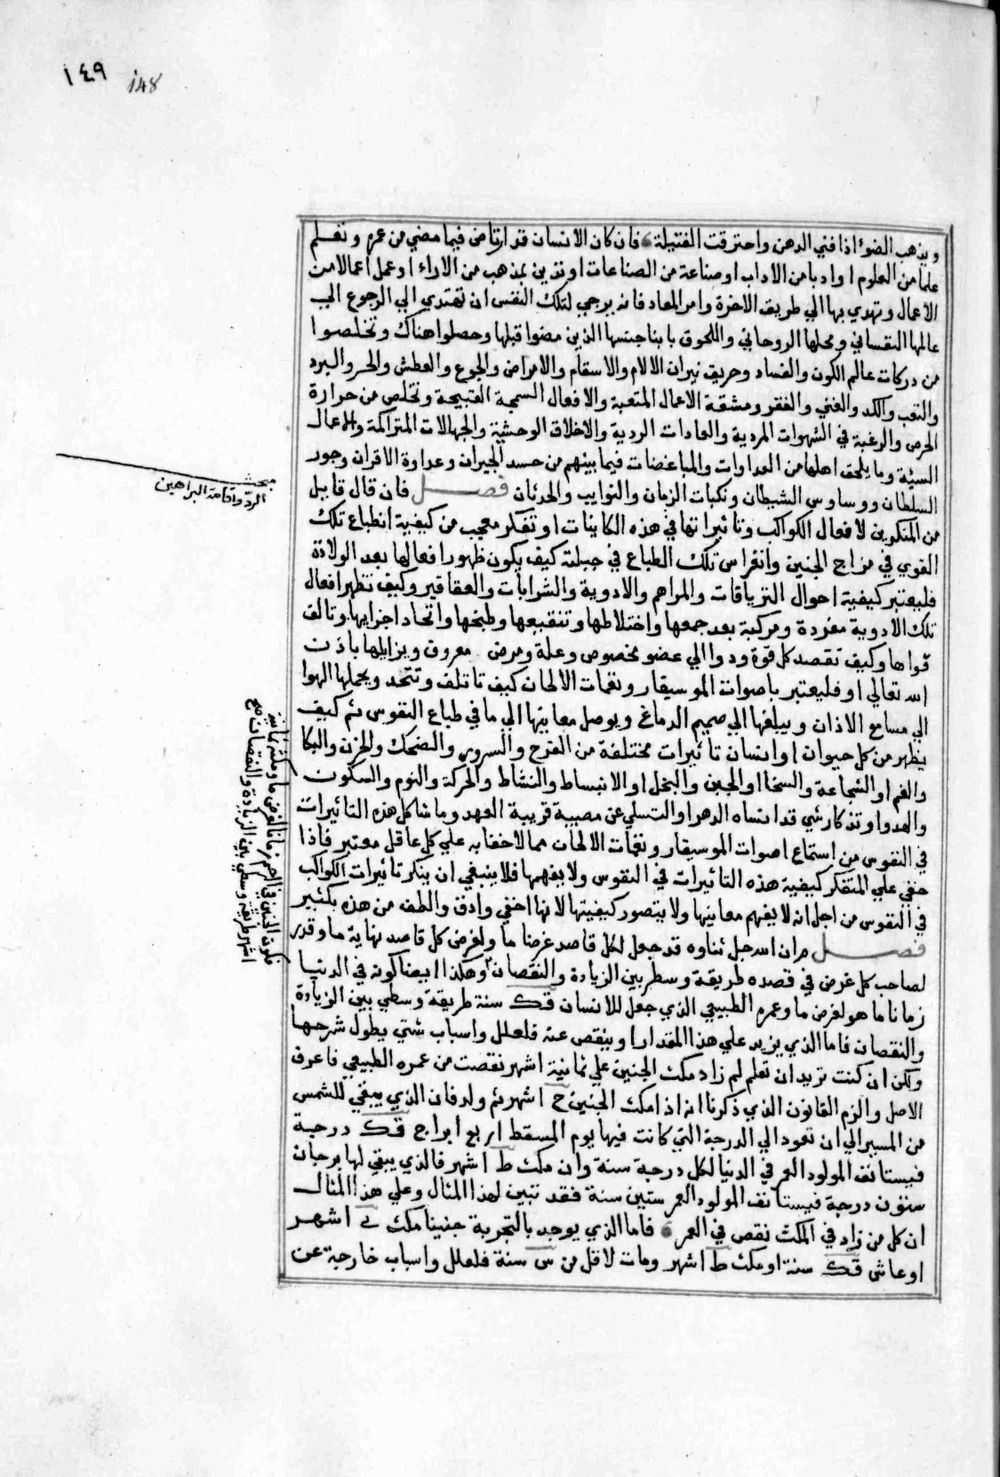 ١٤٩ 148
ويذهب الضوء اذا فني الدهن واحترقت الفتيلة فان كان الانسان قد ارتاض فيما مضي من عمره وتعلم
علما من العلوم او ادبا من الاداب او صناعة من الصناعات او تدين بمذهب من الاراء او عمل اعمالا من
الاعمال وتهدي بها الي طريق الاخرة وامر المعاد فانه يرجي لتلك النفس ان تهتدي الي الرجوع الي
عالمها النفساني ومحلها الروحاني واللحوق بابنا جنسها الذين مضوا قبلها وحصلوا هناك وتخلصوا
من دركات عالم الكون والفساد وحريق نيران الالام والاسقام والامراض والجوع والعطش والحر والبرد
والتعب والكد والغني والفقر ومشقة الاعمال المتعبة والافعال السمجة القبيحة وتخلص من حرارة
الحرص والرغبة في الشهوات المردية والعادات الردية والاخلاق الوحشية والجهالات المتراكمة والاعمال
السيئة وما يلحق اهلها من العداوات والمباغضات فيما بينهم من حسد الجيران وعداوة الاقران وجور
السلطان ووساوس الشيطان ونكبات الزمان والنوايب والحدثان فصل فان قال قايل
من المنكرين لافعال الكواكب وتاثيراتها في هذه الكاينات او تفكر معجب من كيفية انطباع تلك
القوي في مزاج الجنين وانغراس تلك الطباع في جبلته كيف يكون ظهور افعالها بعد الولادة
فليعتبر كيفية احوال الترياقات والمراهم والادوية والشرابات والعقاقير وكيف تظهر افعال
تلك الادوية مفردة ومركبة بعد جمعها واختلاطها وتنقيعها وطبخها واتحاد اجزايها وتالف
قواها وكيف تقصد كل قوة ودوا الي عضو مخصوص وعلة ومرض معروف ويزايلها باذن
الله تعالي او فليعتبر باصوات الموسيقار ونغمات الالحان كيف تاتلف وتتحد ويحملها الهوا
الي مسامع الاذان ويبلغها الي صميم الدماغ ويوصل معاينها الي ما في طباع النفوس ثم كيف
يظهر من كل حيوان او انسان تاثيرات مختلفة من الفرح والسرور والضحك والحزن والبكا
والغم او الشجاعة والسخا او الجبن والبخل او الانبساط والنشاط والحركة والنوم والسكون
والهدو او تذكار شي قد انساه الدهر او التسلي عن مصيبة قريبة العهد وما شاكل هذه التاثيرات
في النفوس من استماع اصوات الموسيقار ونغمات الالحان مما لا خفا به علي كل عاقل معتبر فاذا
خفي علي المتفكر كيفية هذه التاثيرات في النفوس ولا يفهمها فلا ينبغي ان ينكر تاثيرات الكواكب
في النفوس من اجل انه لا يفهم معاينها ولا يتصور كيفيتها لانها اخفي وادق والطف من هذه بكثير
فصل ان الله جل ثناوه قد جعل لكل قاصد غرضا ما ولغرض كل قاصد نهاية ما وقدر
لصاحب كل غرض في قصده طريقة وسطي بين الزيادة والنقصان وهكذا ايضا كونه في الدنيا
زمانا ما هو لغرض ما وعمره الطبيعي الذي جعل للانسان قك سنة طريقة وسطي بين الزيادة
والنقصان فاما الذي يزيد علي هذا المقدار او ينقص عنه فلعلل واسباب شتي يطول شرحها
ولكن ان كنت تريد ان تعلم لم زاد مكث الجنين علي ثمانية اشهر نقصت من عمره الطبيعي فاعرف
الاصل والزم القانون الذي ذكرنا انه اذا مكث الجنين ح اشهر ثم ولد فان الذي يبقي للشمس
من المسير الي ان تعود الي الدرجة التي كانت فيها يوم المسقط اربع ابراج قك درجة
فيستانف المولود العمر في الدنيا لكل درجة سنة وان مكث ط اشهر فالذي يبقي لها برجان
ستون درجة فيستانف المولود العمر ستين سنة فقد تبين لهذا المثال وعلي هذا المثال
ان كل من زاد في المكث نقص في العمر فاما الذي يوجد بالتجربة جنينا مكث ي اشهر
او عاش قك سنة او مكث ط اشهر ومات لاقل من س سنة فلعلل واسباب خارجة عن
مبحث
الرد واقامة البراهين
تكون الجنين في الرحم زمانا لغرض ما ومكثه ثمانية
اشهر طريقة وسطي بين الزيادة والنقصان صح